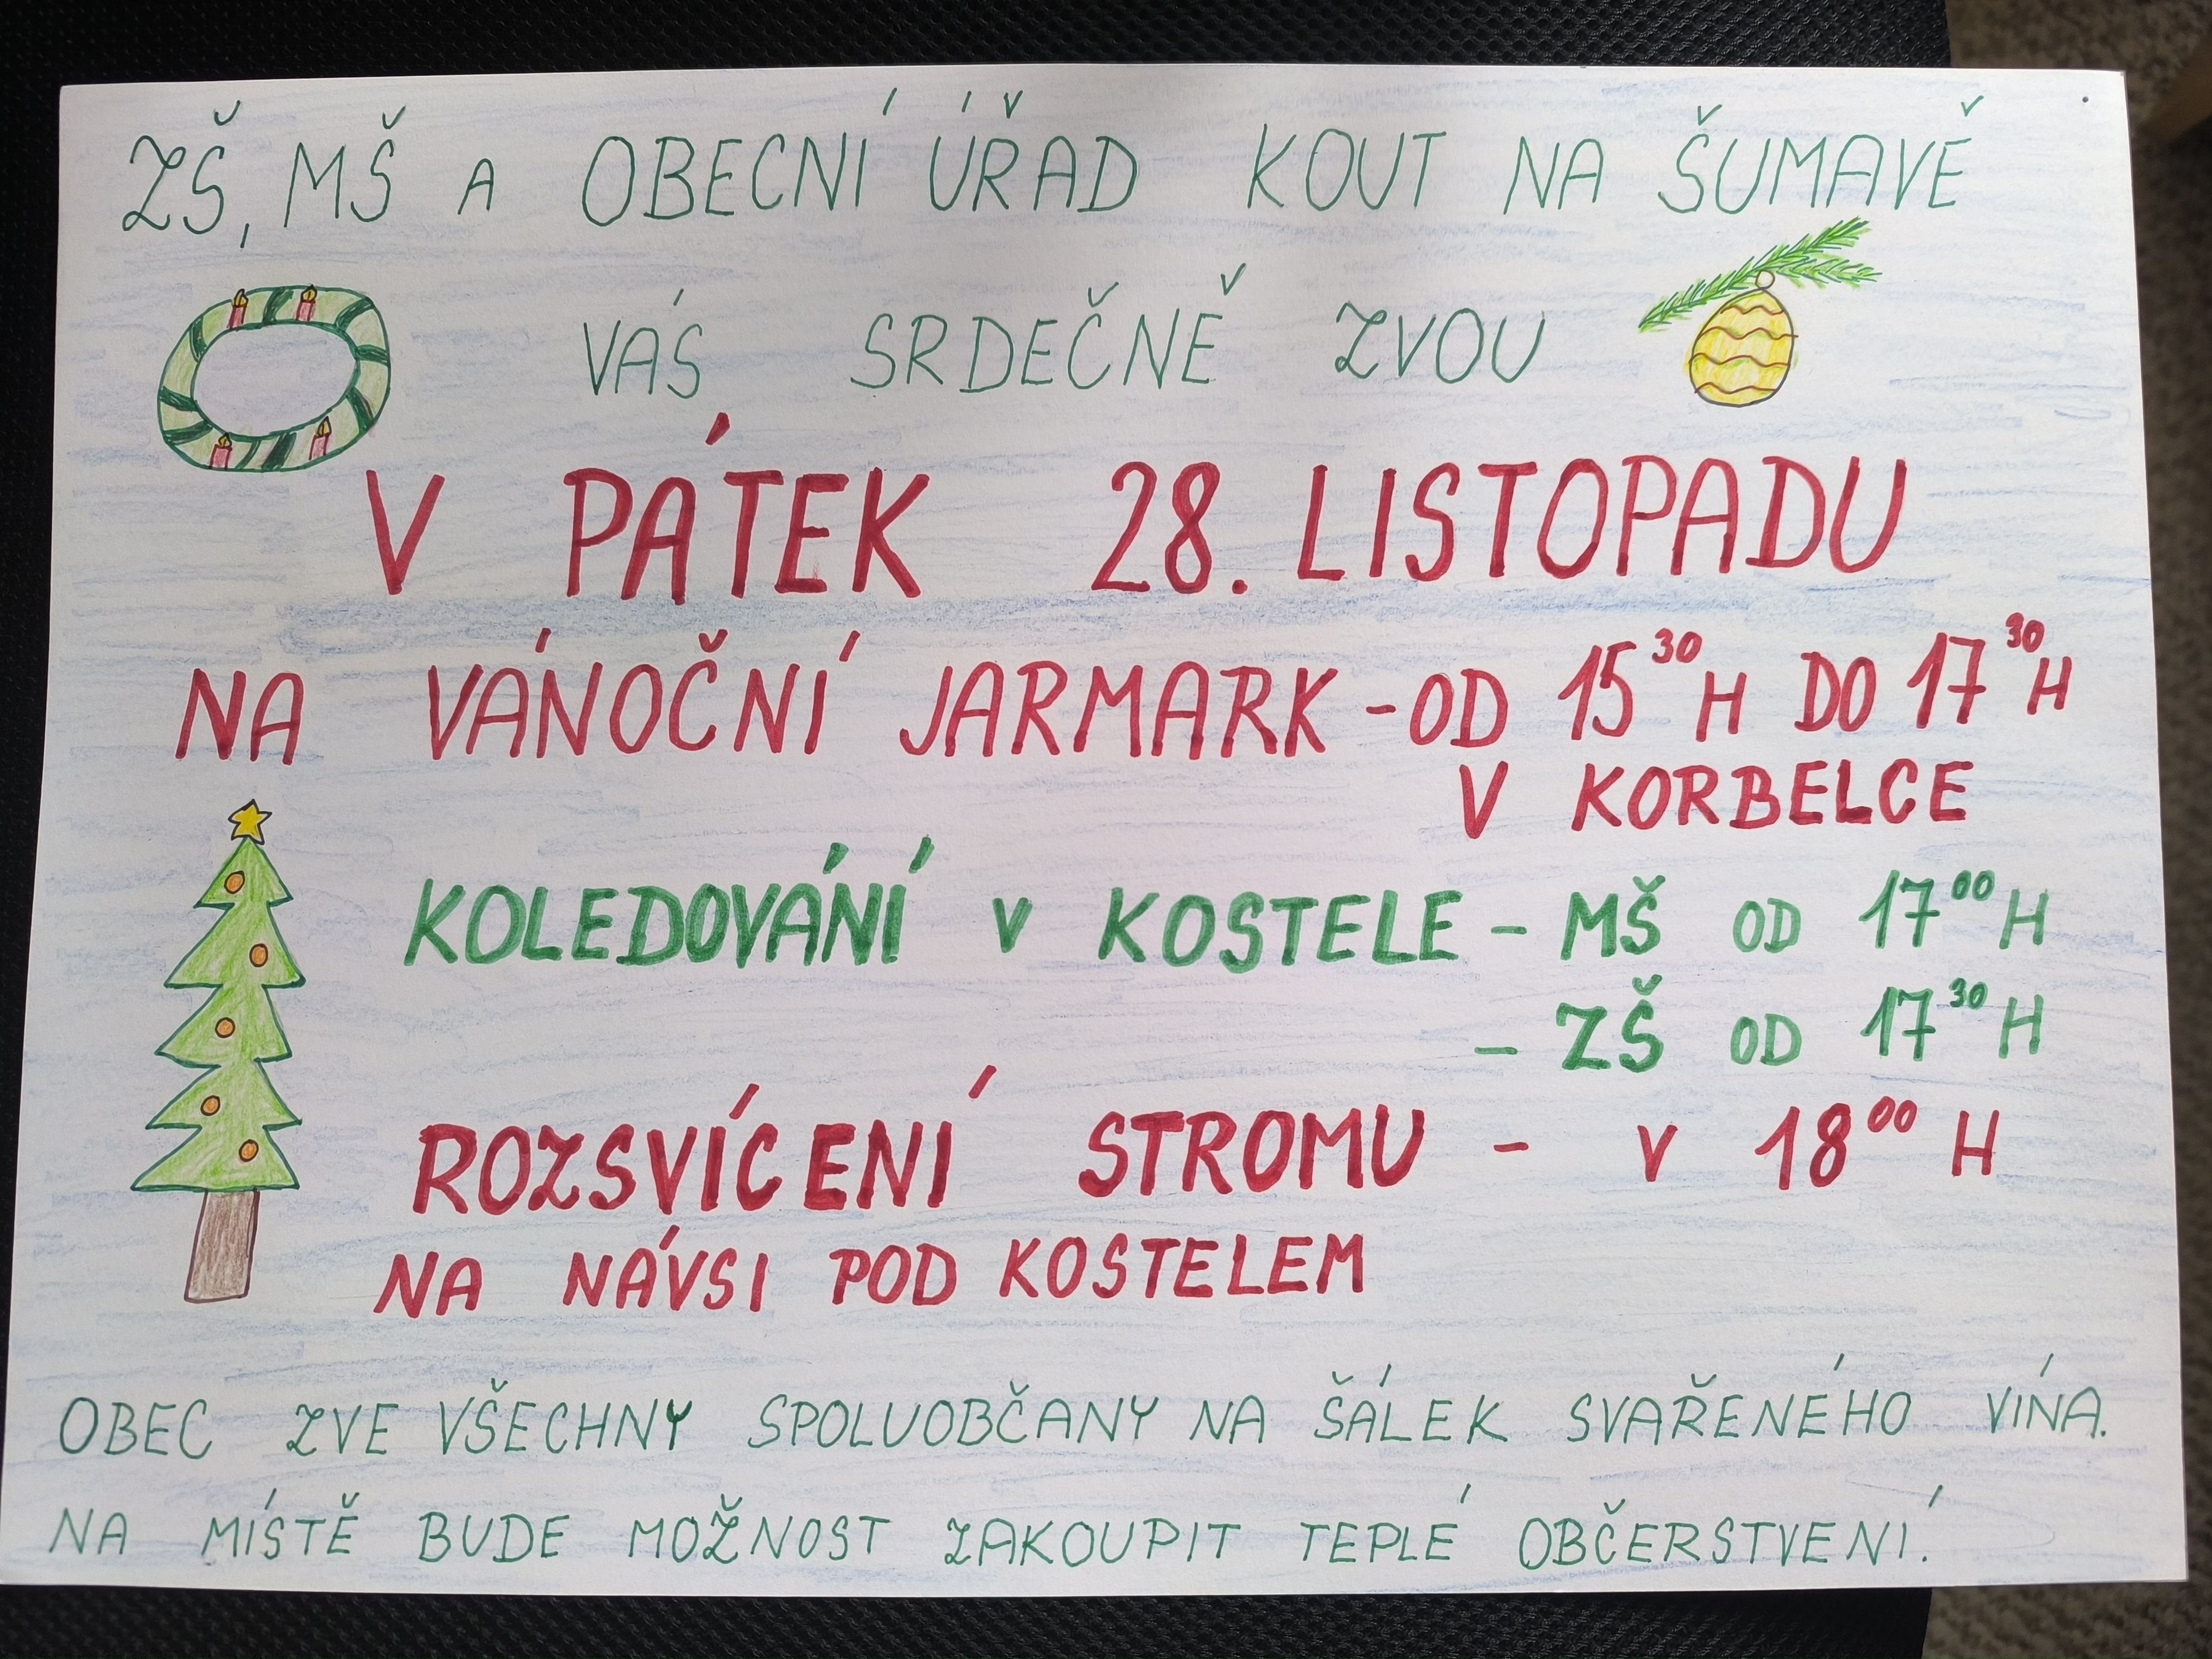 ZŠ, MŠ A OBECNÍ ÚŘAD KOUT NA ŠUMAVĚ
VÁS SRDEČNĚ ZVOU
V PÁTEK 28. LISTOPADU
NA VÁNOČNÍ JARMARK - OD 15³⁰ H DO 17³⁰ H
V KORBELCE
KOLEDOVÁNÍ V KOSTELE - MŠ OD 17⁰⁰ H
- ZŠ OD 17³⁰ H
ROZSVÍCENÍ STROMU - V 18⁰⁰ H
NA NÁVSI POD KOSTELEM
OBEC ZVE VŠECHNY SPOLUOBČANY NA ŠÁLEK SVAŘENÉHO VÍNA.
NA MÍSTĚ BUDE MOŽNOST ZAKOUPIT TEPLÉ OBČERSTVENÍ.